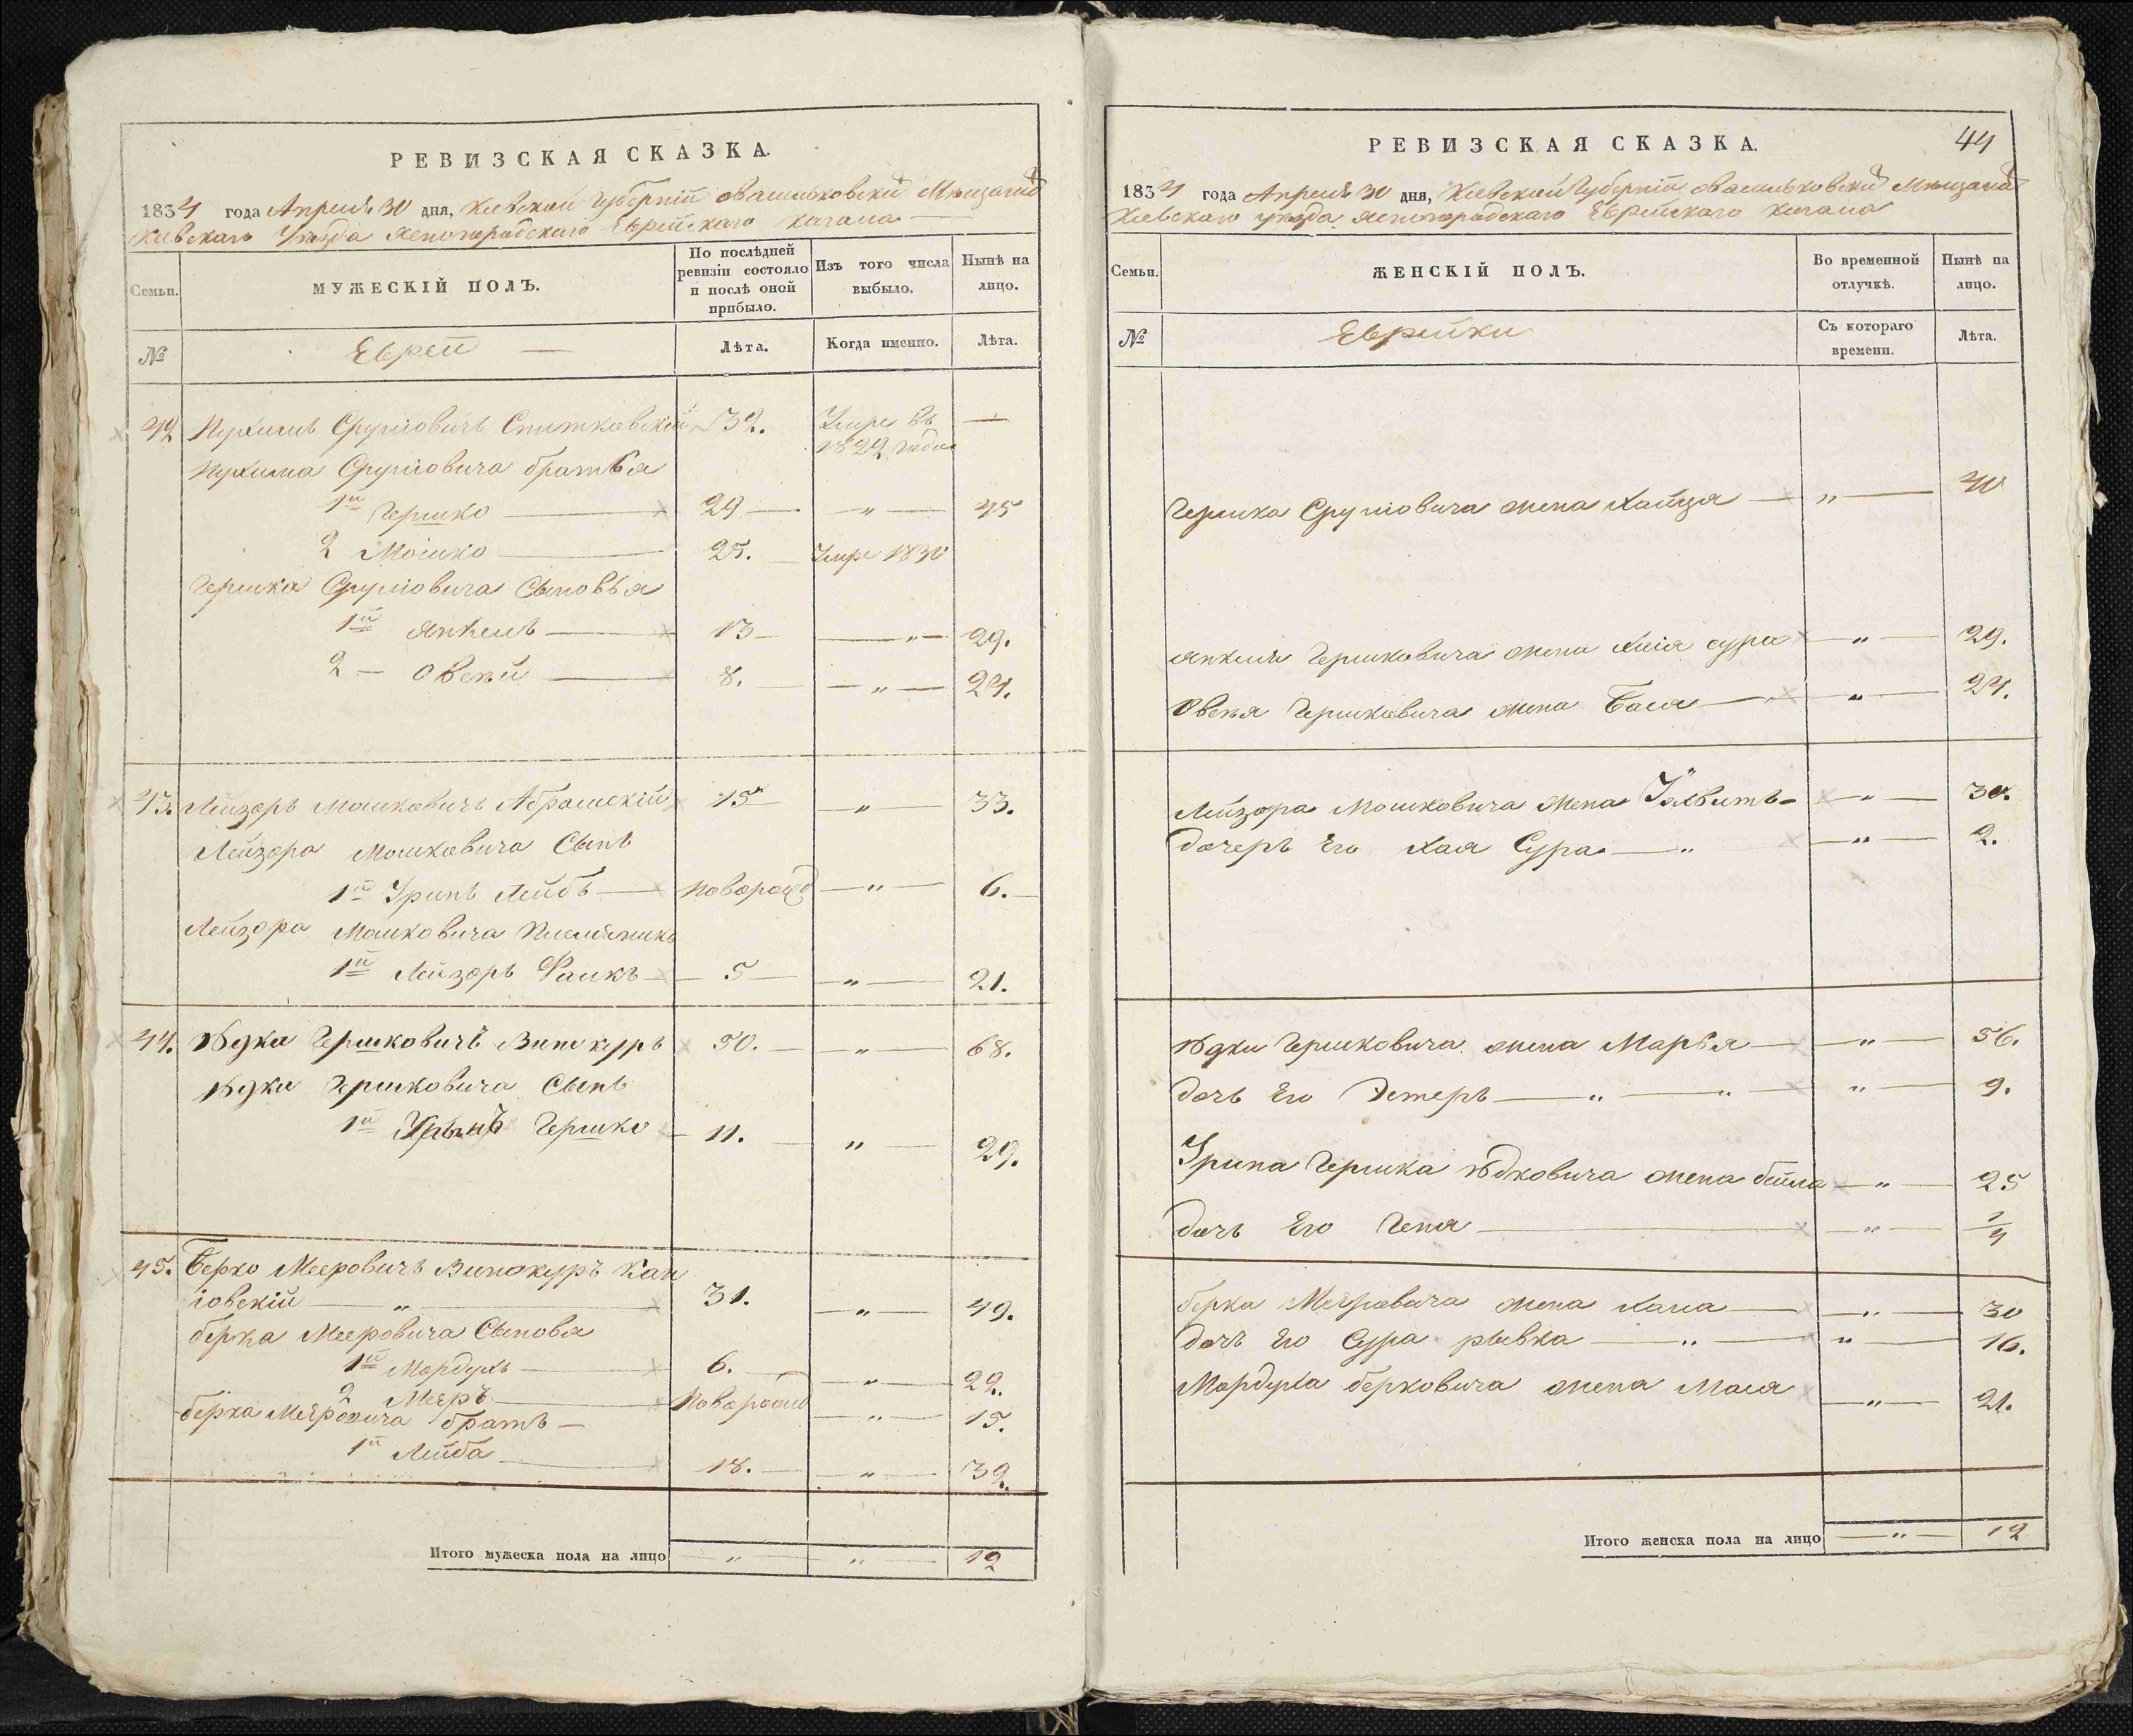 РЕВИЗСКАЯ СКАЗКА.
1834 года Апреля 30 дня, Киевской Губерній Васильковскій Мѣщанъ
Киевскаго Уѣзда Ясногородскаго Еврейскаго кагала
Семьи.
МУЖЕСКІЙ ПОЛЪ.
По послѣдней ревизіи состояло и послѣ оной прибыло.
Изъ того числа выбыло.
Нынѣ на лицо.
№
Еврей
Лѣта.
Когда именно.
Лѣта.
42 Нухимъ Сруліовичъ 32. Умре въ —
1829 года
Нухима Сруліовича братья
1й Гершко — 29 — — „ — 45
2 Мошко — 25. — Умре 1830
Гершка Сруліовича Сыновья
1й Янкель — 13 — — „ — 29.
2 — Овсѣй — 8. — — „ — 24.
43. Лейзоръ Мошковичъ Абрамскій 15 — „ — 33.
Лейзора Мошковича Сынъ
1й Уринъ Лейбъ — новорожд — „ — 6. —
Лейзора Мошковича Племянникъ
1й Лейзоръ — 5 — — „ — 21.
44. Юдка Гершковичъ Винокуръ 50. — — „ — 68.
Юдки Гершковича Сынъ
1й Гершко — 11. — „ — 29.
45. Берко Мееровичъ Винокуръ Кан
іовскій — „ — 31. — „ — 49.
берка Мееровича Сыновя
1й Мордухъ — 6. — — „ — 22.
2 Мееръ — Новорожд — „ — 15.
берка Мееровича братъ —
1й Лейба — 18. — — „ — 32.
Итого мужеска пола на лицо — „ — „ — 12
РЕВИЗСКАЯ СКАЗКА. 44
1834 года Апреля 30 дня, Киевской Губерній Васильковскій Мѣщанъ
Киевскаго уѣзда Ясногородскаго Еврейскаго кагала
Семьи.
ЖЕНСКІЙ ПОЛЪ.
Во временной отлучкѣ.
Нынѣ на лицо.
№
Еврейки
Съ котораго времени.
Лѣта.
Гершка Сруліовича жена Хайця — „ — 40
Янкеля Гершковича жена Хаія сура — „ — 29.
Овсѣя Гершковича жена Бася — „ — 24.
Лейзора Мошковича жена — „ — 30.
дочеръ Его Хая Сура — „ — „ — 2.
Юдки Гершковича жена Марья — — „ — 56.
дочь Его Эстеръ — „ — „ — „ — 9.
Урина Гершка Юдковича жена бейла — „ — 25
дочь Его Геня — „ — 1/4
берка Мееровича жена Хана — — „ — 30
дочь Его Сура рывка — „ — „ — 16.
Мордуха берковича жена Мася — „ — 21.
Итого женска пола на лицо — „ — 12